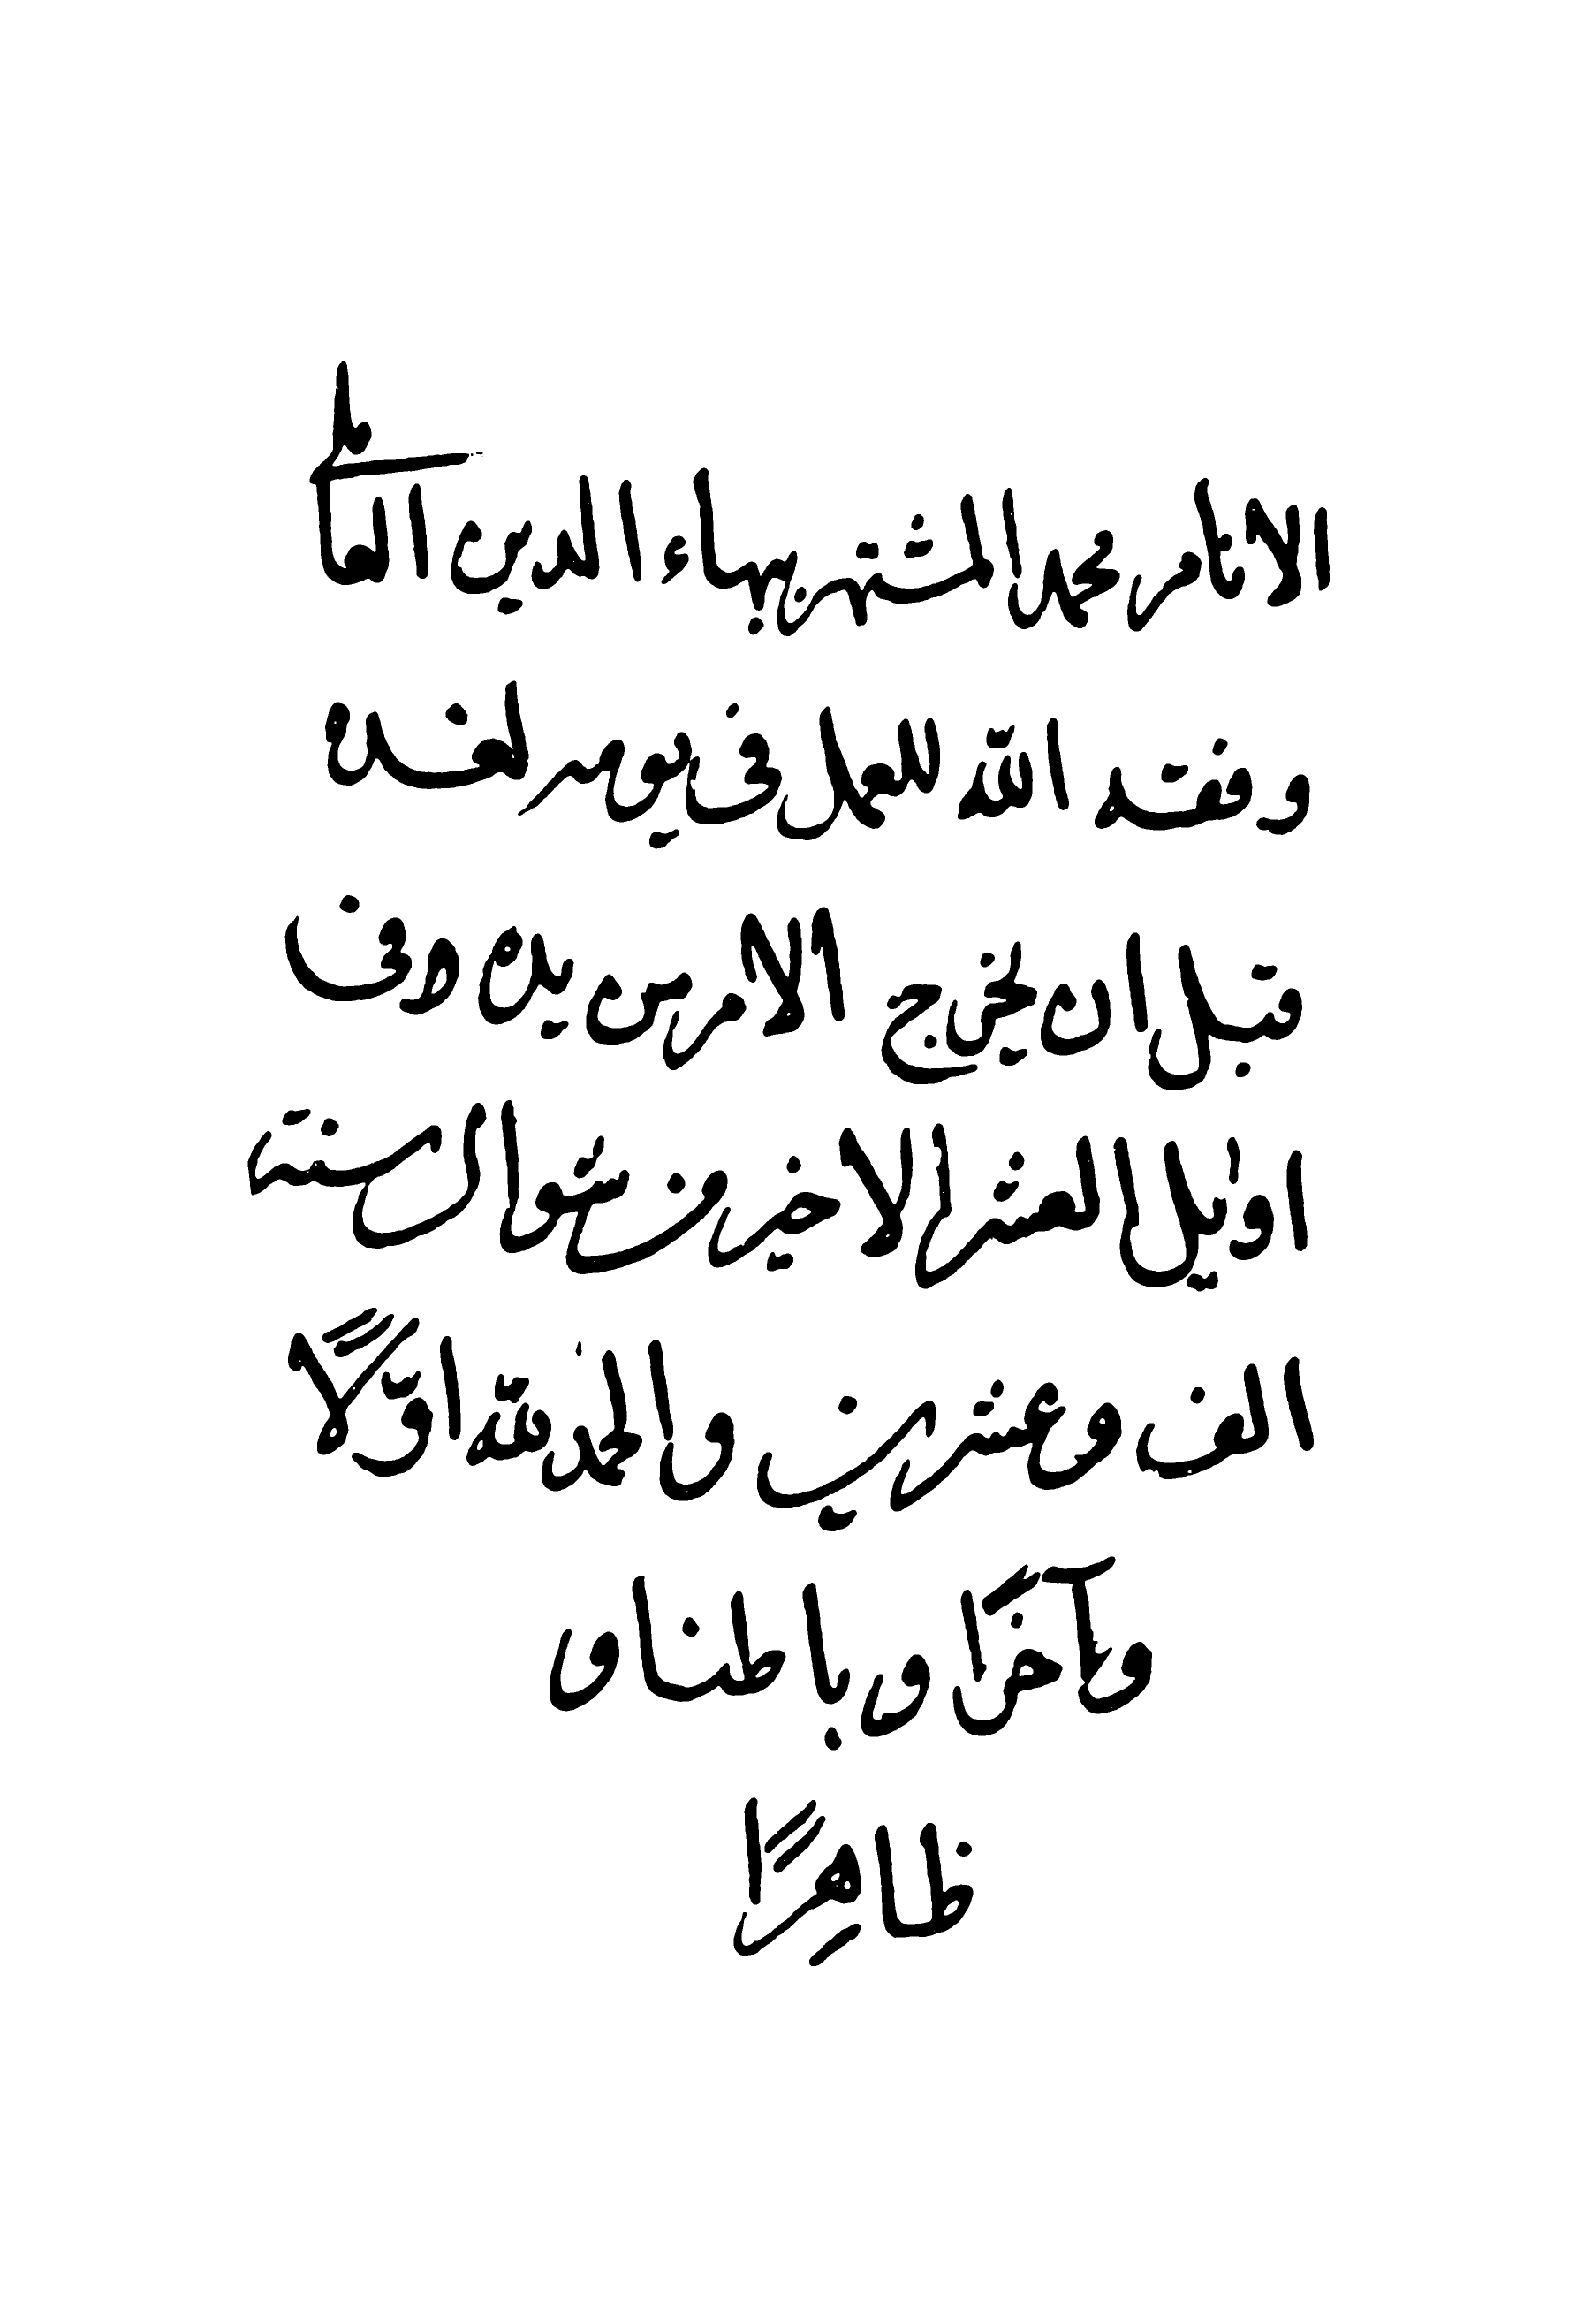 الانام محمد المشتهر ببهاء الدين العاملي
وفقه الله للعمل في يومه لغده
قبل ان يخرج الامر من يده وفى
اوايل العشر الاخير من شوال سنة
الف وعشرين والحمد لله اوّلاً
وآخراً وباطنا و
ظاهِراً